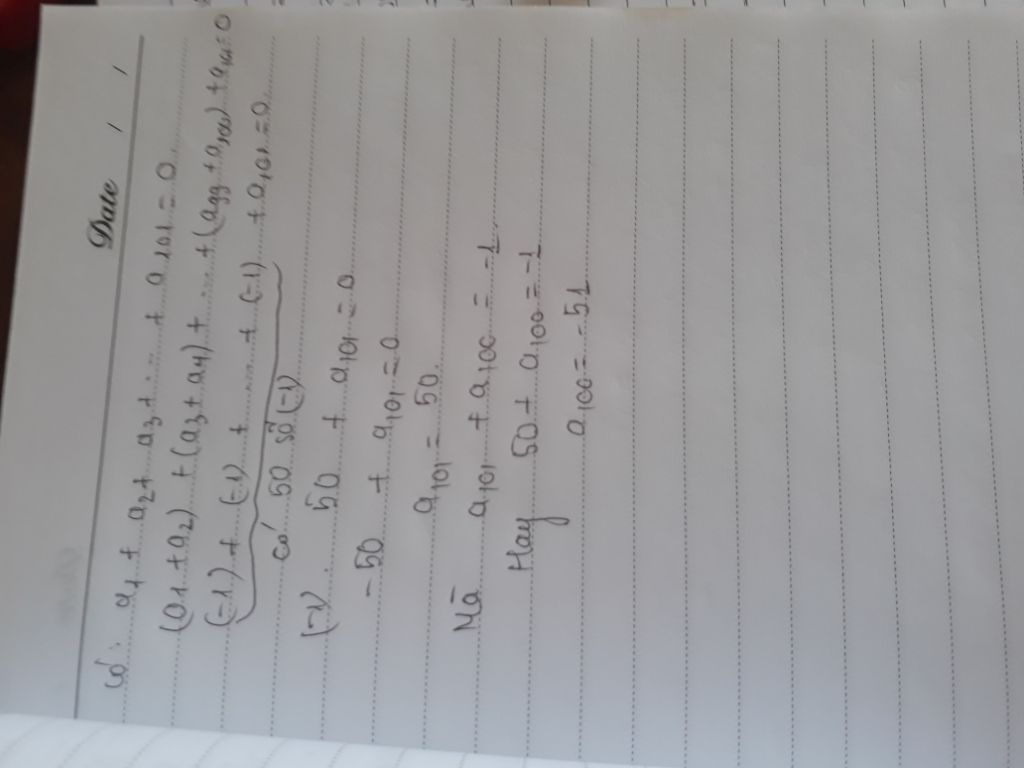 Date / /
Có: a1 + a2 + a3 + ... + a101 = 0
(a1 + a2) + (a3 + a4) + ... + (a99 + a100) + a101 = 0
(-1) + (-1) + ... + (-1) + a101 = 0
có 50 số (-1)
(-1) . 50 + a101 = 0
-50 + a101 = 0
a101 = 50
Mà a101 + a100 = -1
Hay 50 + a100 = -1
a100 = -51